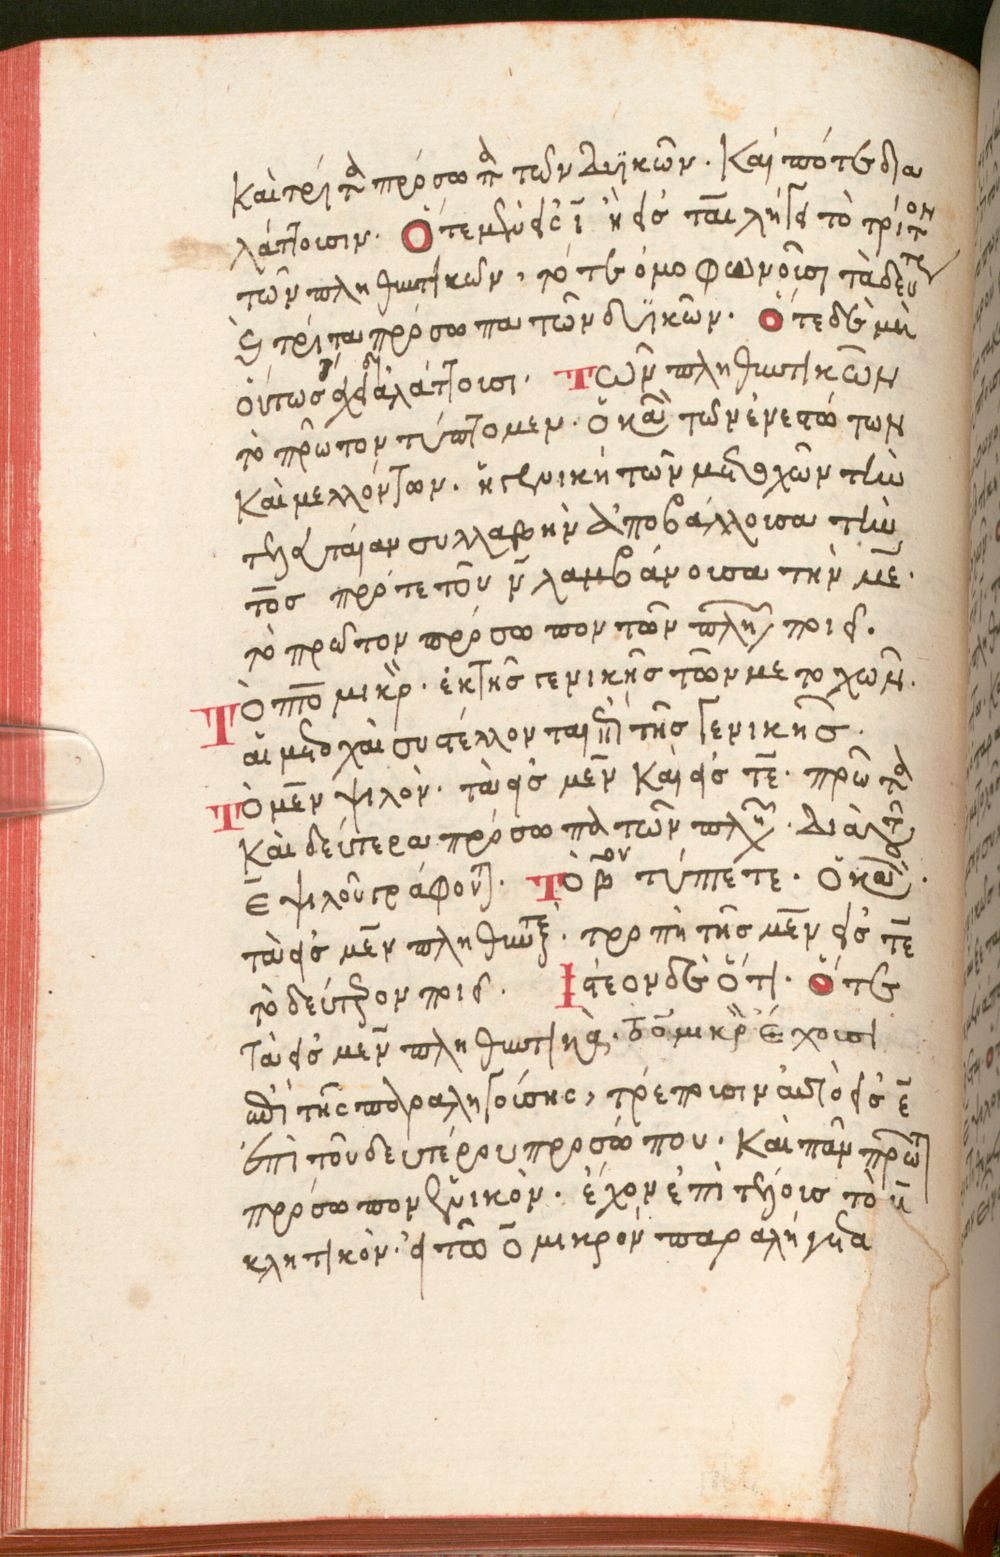 καὶ τρίτα πρόσωπα τῶν δυϊκῶν. Καὶ πότε δια
λάττουσιν. Ὅτε μὲν εἰς ῑ ἢ εἰς ται λήγει τὸ τρίτον
τῶν πληθυντικῶν, τότε ὁμοφωνοῦσι τὰ δεύτε
ϗ τρίτα πρόσωπα τῶν δυϊκῶν. Ὅτε δὲ μὴ
οὕτως ἔχει διαλάττουσι. Τῶν πληθυντικῶν
τὸ πρῶτον τύπτομεν. Ὁ κανὼν τῶν ἐνεστώτων
καὶ μελλόντων. ἡ γενικὴ τῶν μετοχῶν τὴν
τελευταίαν συλλαβὴν ἀποβάλλουσα τὴν
τος πρό τε τοῦ ν̄ λαμβάνουσα τὴν με̄.
τὸ πρῶτον πρόσωπον τῶν πλη ποιεῖ.
Τὸ πτο μικρ. ἐκ τῆς γενικῆς τῶν μετοχῶν.
αἱ μετοχαὶ συστέλλονται ἐπὶ τῆς γενικῆς.
Τὸ μεν ψιλὸν. τὰ εἰς μεν καὶ εἰς τε. πρῶτα
καὶ δεύτερα πρόσωπα τῶν πλη. διὰ τοῦ
ε̄ ψιλοῦ γράφονται. Τὸ βον τύπτετε. Ὁ κανών.
τὰ εἰς μεν πληθυντ. τροπῇ τῆς μεν εἰς τε
τὸ δεύτερον ποιεῖ. Ἰστέον δὲ ὅτι. ὅτε
τὰ εἰς μεν πληθυντικὰ. τὸ ο̄ μικρ ἔχουσι
ἐπὶ τῆς παραληγούσης, τρέπουσιν αὐτὸ εἰς ε̄
ἐπὶ τοῦ δευτέρου προσώπου. Καὶ πᾶν πρῶτ
πρόσωπον ἑνικὸν. ἔχον ἐπὶ τέλους τὸ ν̄
κλητικὸν. ϗ τῶ ο̄ μικρὸν παραλήγεται